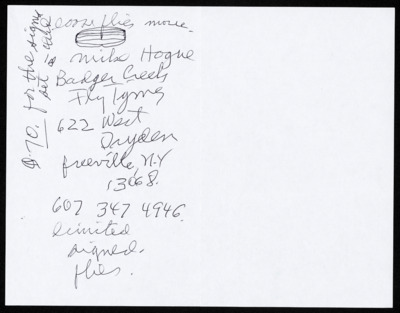 loose flies move.
Mike Hogue
Badger Creek
Fly Tying
622 West
Dryden
freeville, N.Y
13068.
607 347 4946.
limited
signed.
flies.
$70. for the signed
set